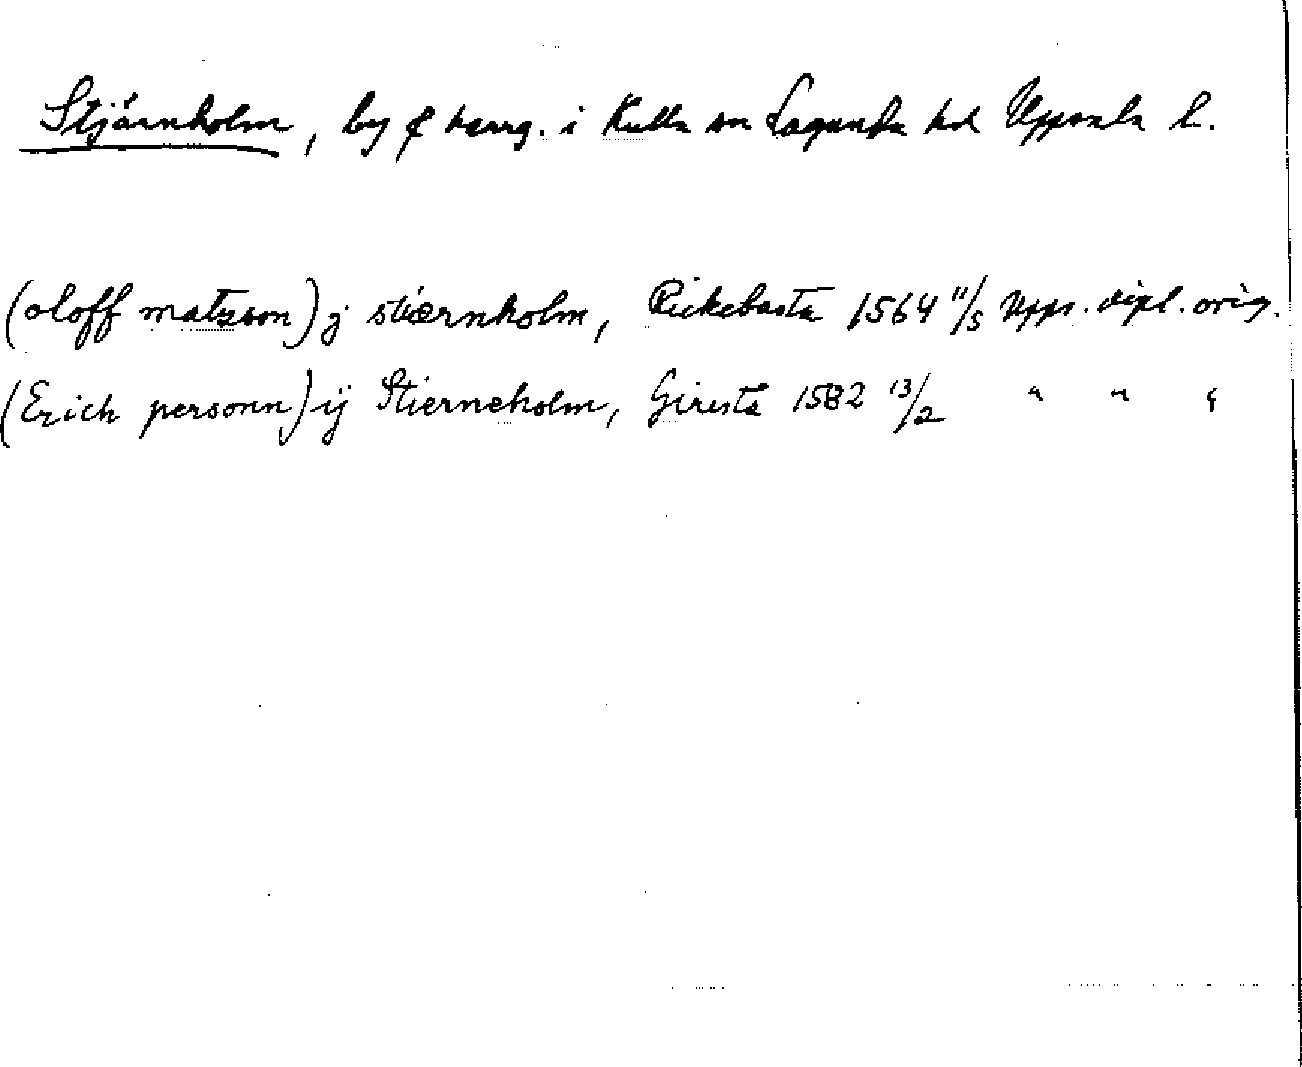 Stjärnholm, by o herrg. i Kulla sn Lagunda hd Uppsala l.
(oloff matzson) j stiærnholm, Rickebasta 1564 11/5 Upps. dipl. orig.
(Erich personn) ij Stierneholm, Giresta 1582 13/2 " " "